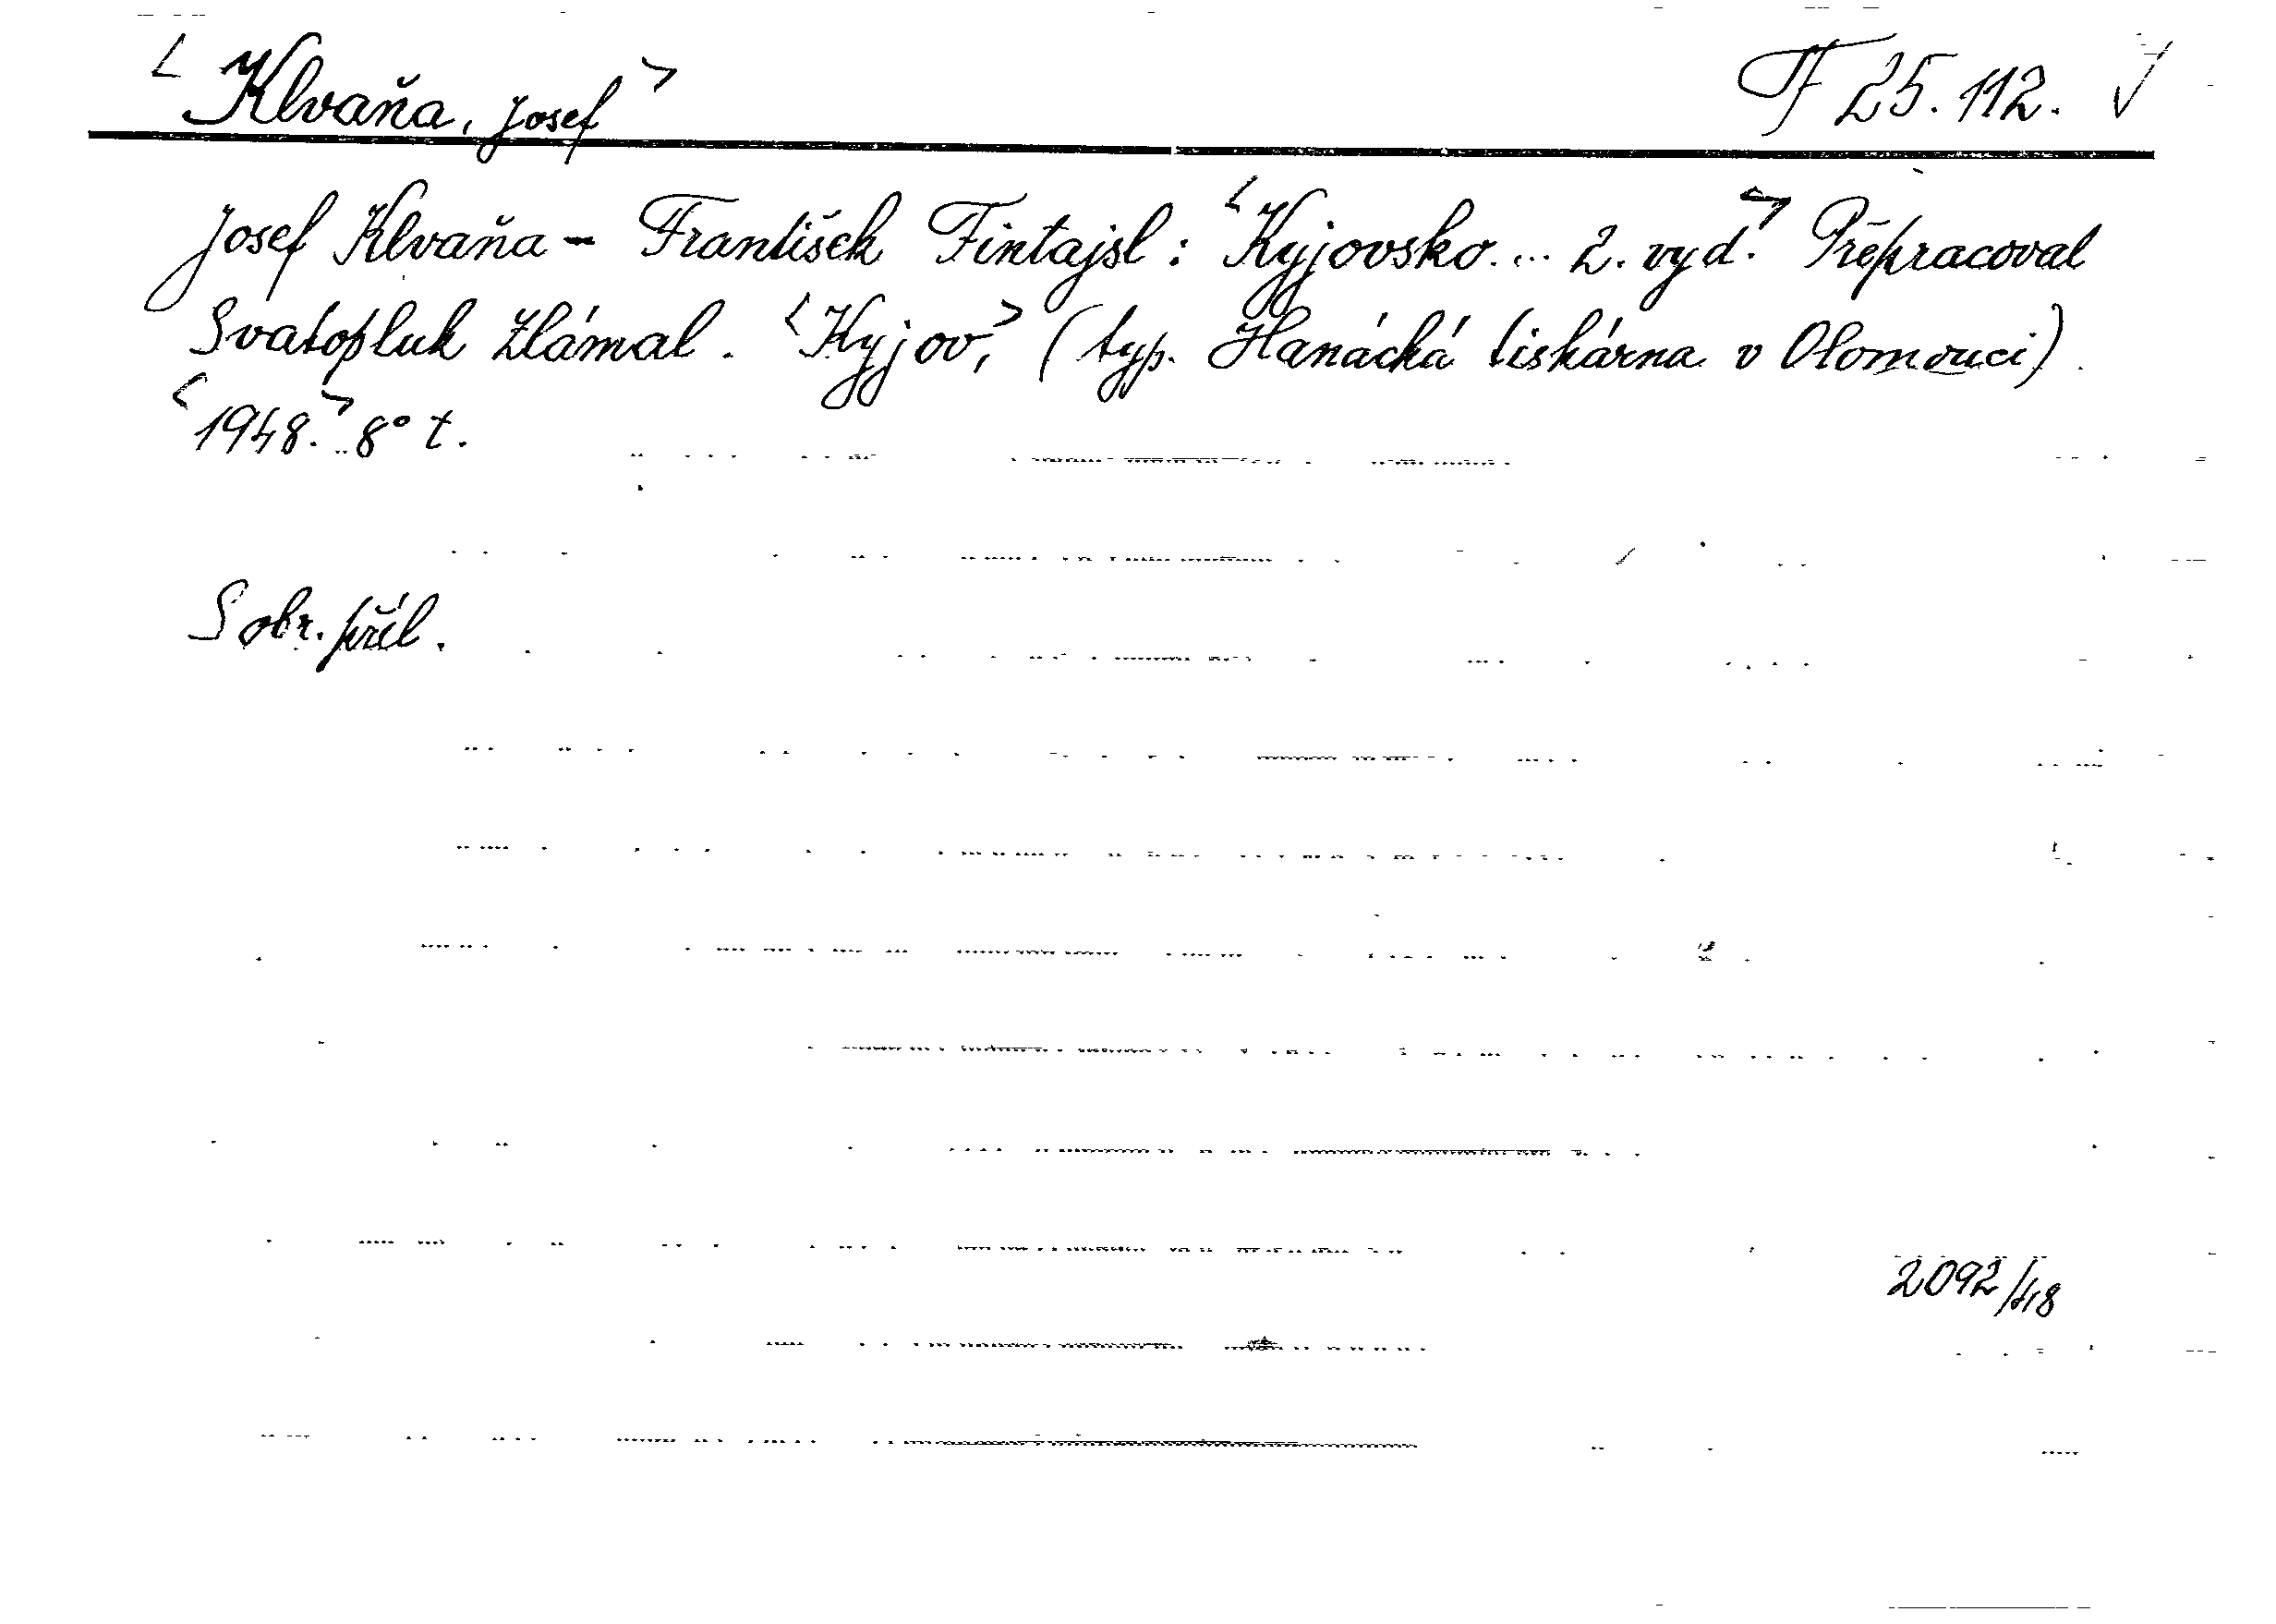 <Klvaňa, Josef> F 25.112. √
Josef Klvaňa - František Fintajsl: <Kyjovsko... 2. vyd.> Přepracoval
Svatopluk Zlámal. <Kyjov,> (typ. Hanácká tiskárna v Olomouci).
<1948.> 8° t.
S obr. příl.
2092/48